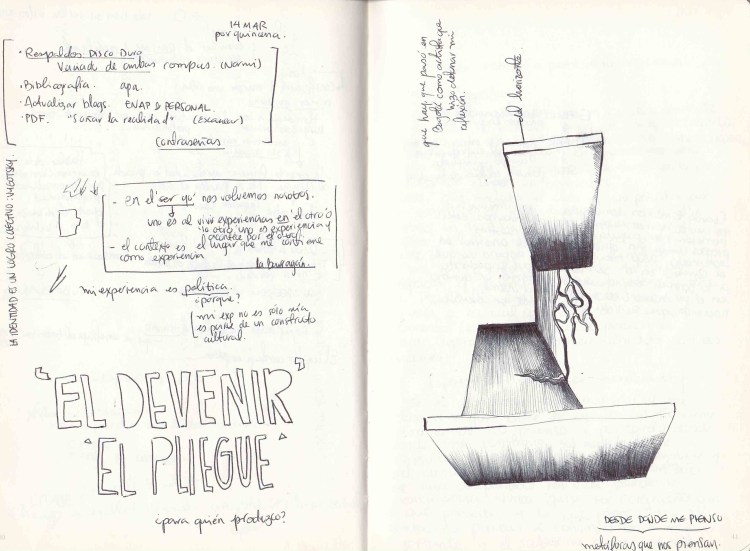 14 MAR
por quincena.
· Respaldos Disco Duro
Vaciado de ambas compus. (Normi)
· Bibliografía. apa.
· Actualizar blogs. ENAP y PERSONAL.
· PDF. "Soñar la realidad" (Escanear)
Contraseñas
LA IDENTIDAD ES UN LOGRO COLECTIVO: VYGOTSKY.
- En el "ser yo" nos volvemos nosotros.
uno es al vivir experiencias en el otro o
lo otro, uno es experiencia y
acontece por el otro.
- el contexto es el lugar que me contiene
como experiencia
la Barragán.
mi experiencia es política.
¿porque?
mi exp no es sólo mía
es parte de un constructo
cultural.
"EL DEVENIR"
"EL PLIEGUE"
¿para quién produzco?
que hay, que pasó en
Bogotá como artista que
hizo detonar mi
reflexión.
del horizonte.
DESDE DÓNDE ME PIENSO
metáforas que nos piensan.